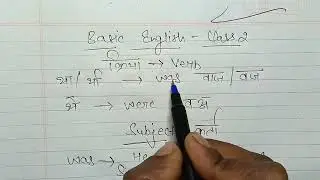 Basic English - Class 2
क्रिया → Verb
था / थी → was वाज / वज
थे → were
Subject
was → He